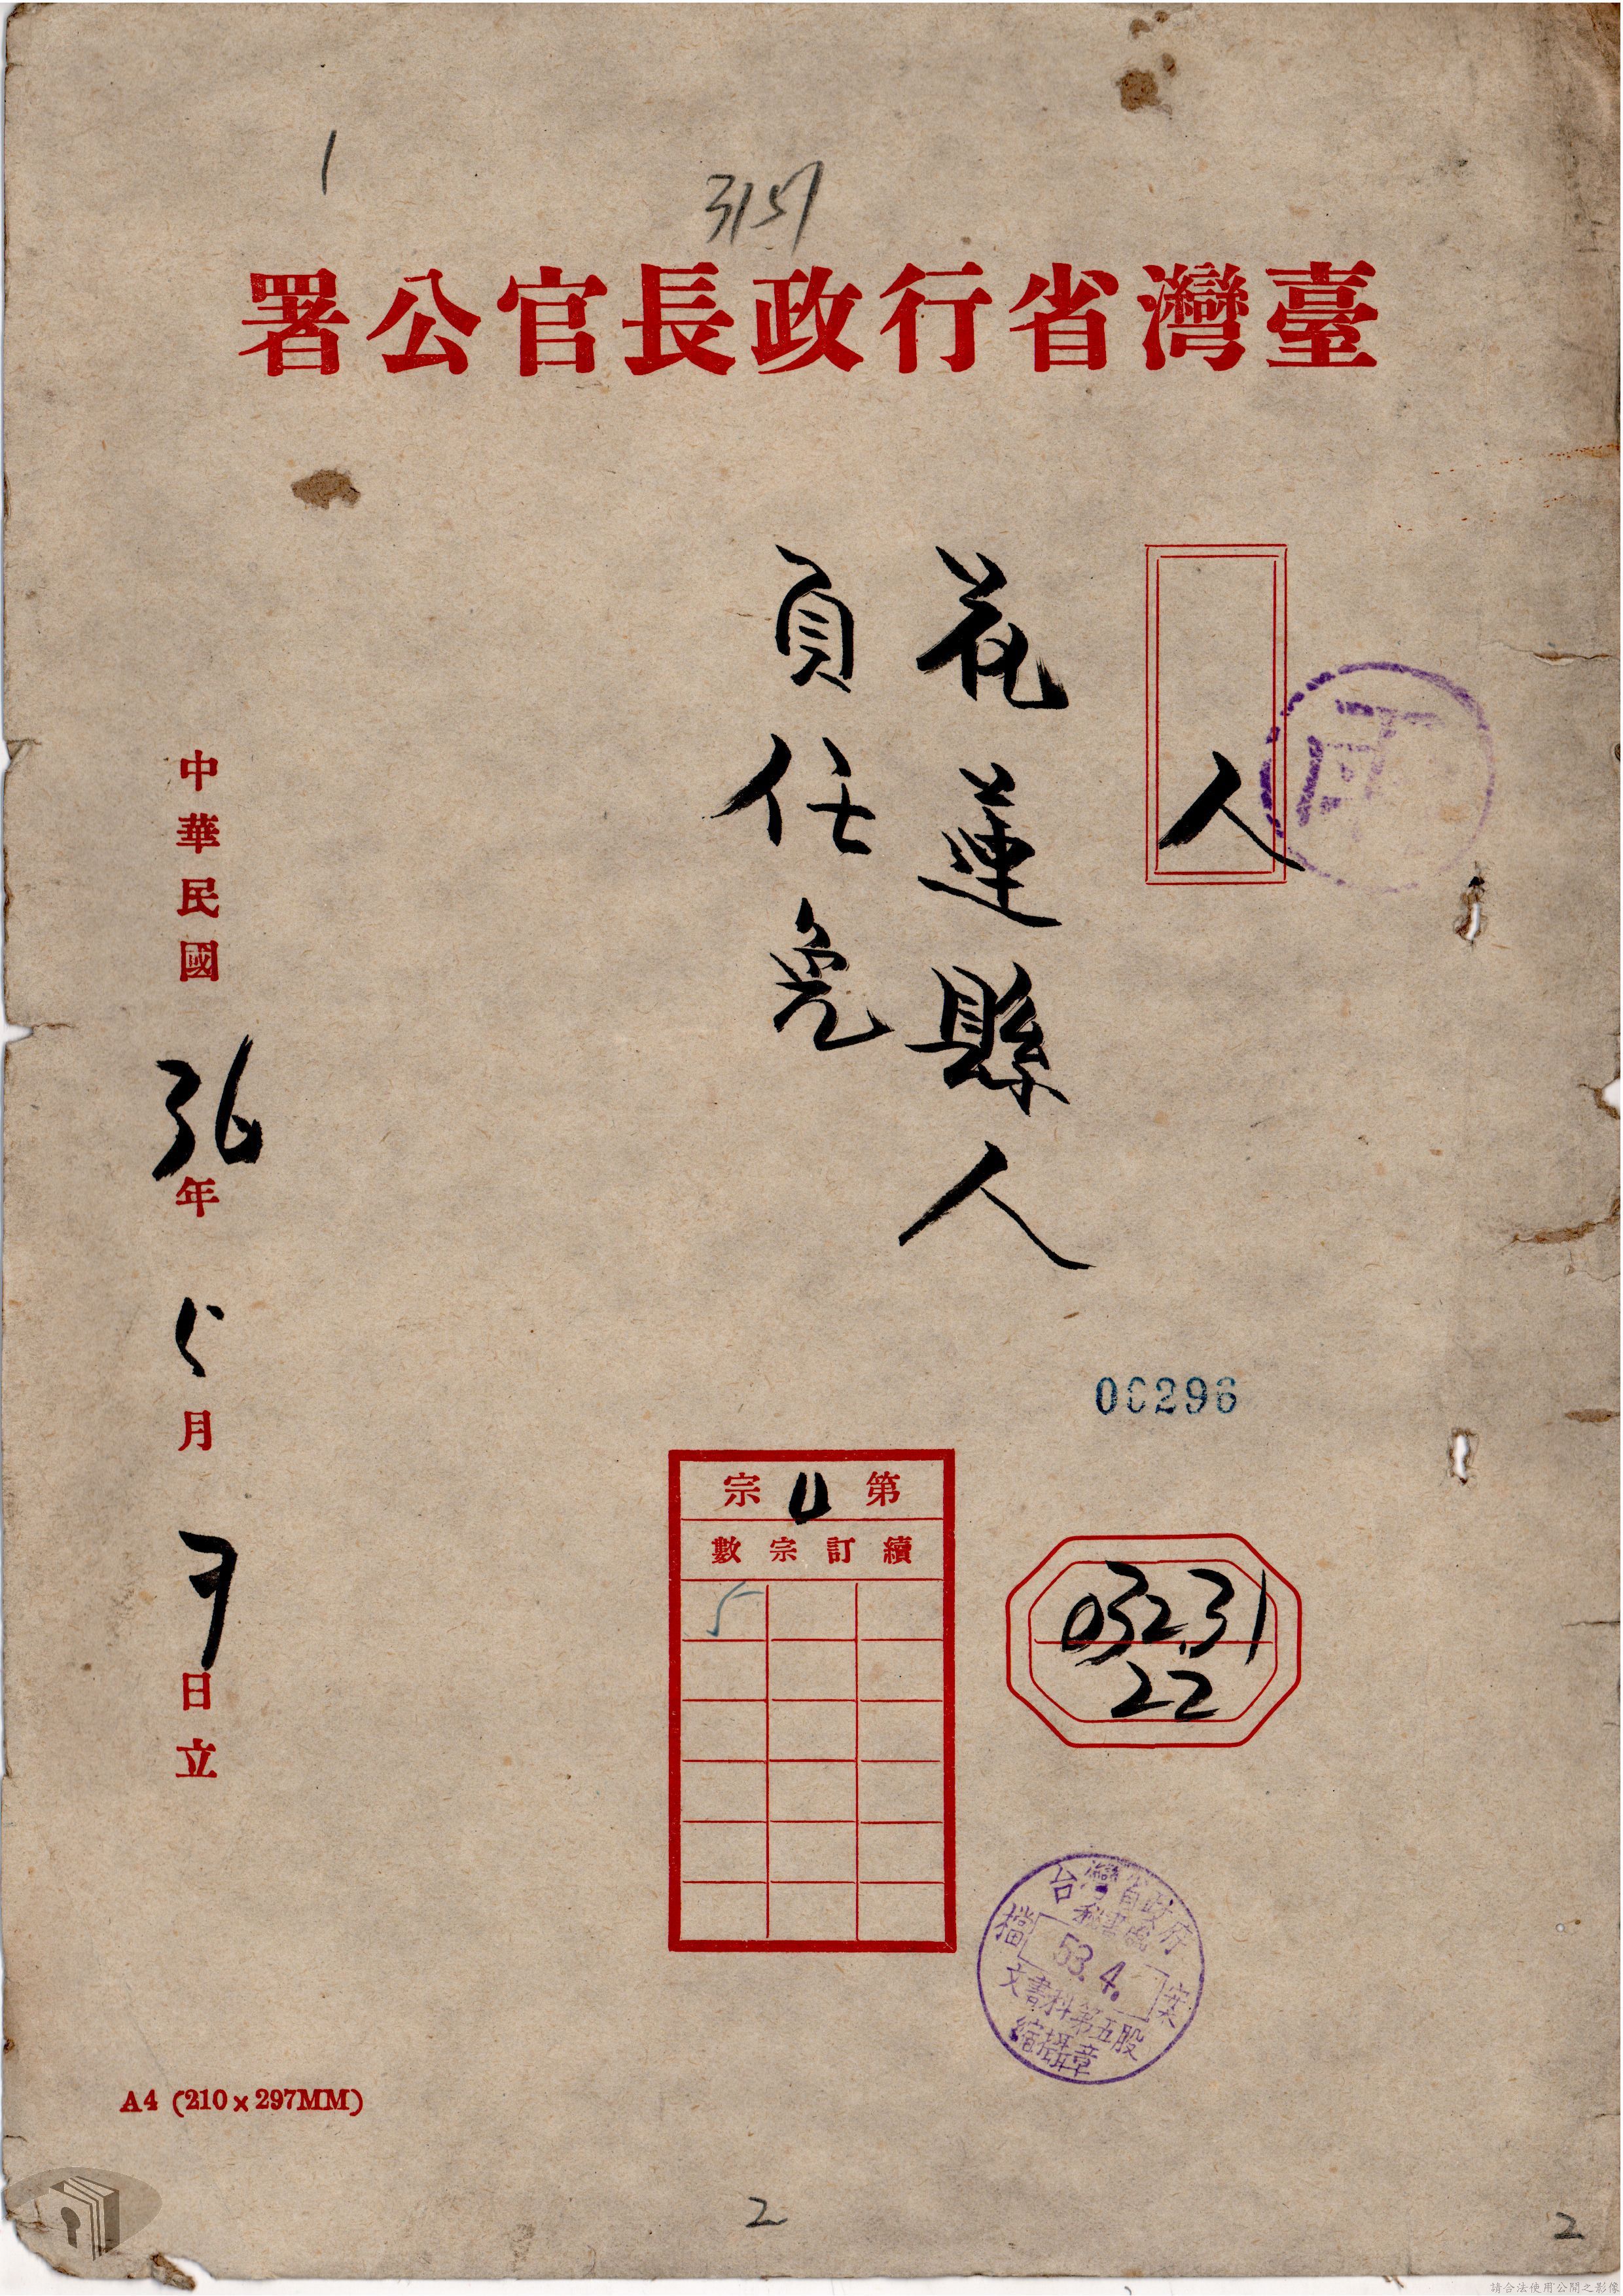 1
3151
臺灣省行政長官公署
人
花蓮縣人
員任免
中華民國36年5月7日立
00296
第11宗
續訂宗數
5
032.31
22
台灣省政府
秘書處
檔案
53.4.
文書科第五股
縮攝章
A4 (210×297MM)
2
2
請合法使用公開之影像